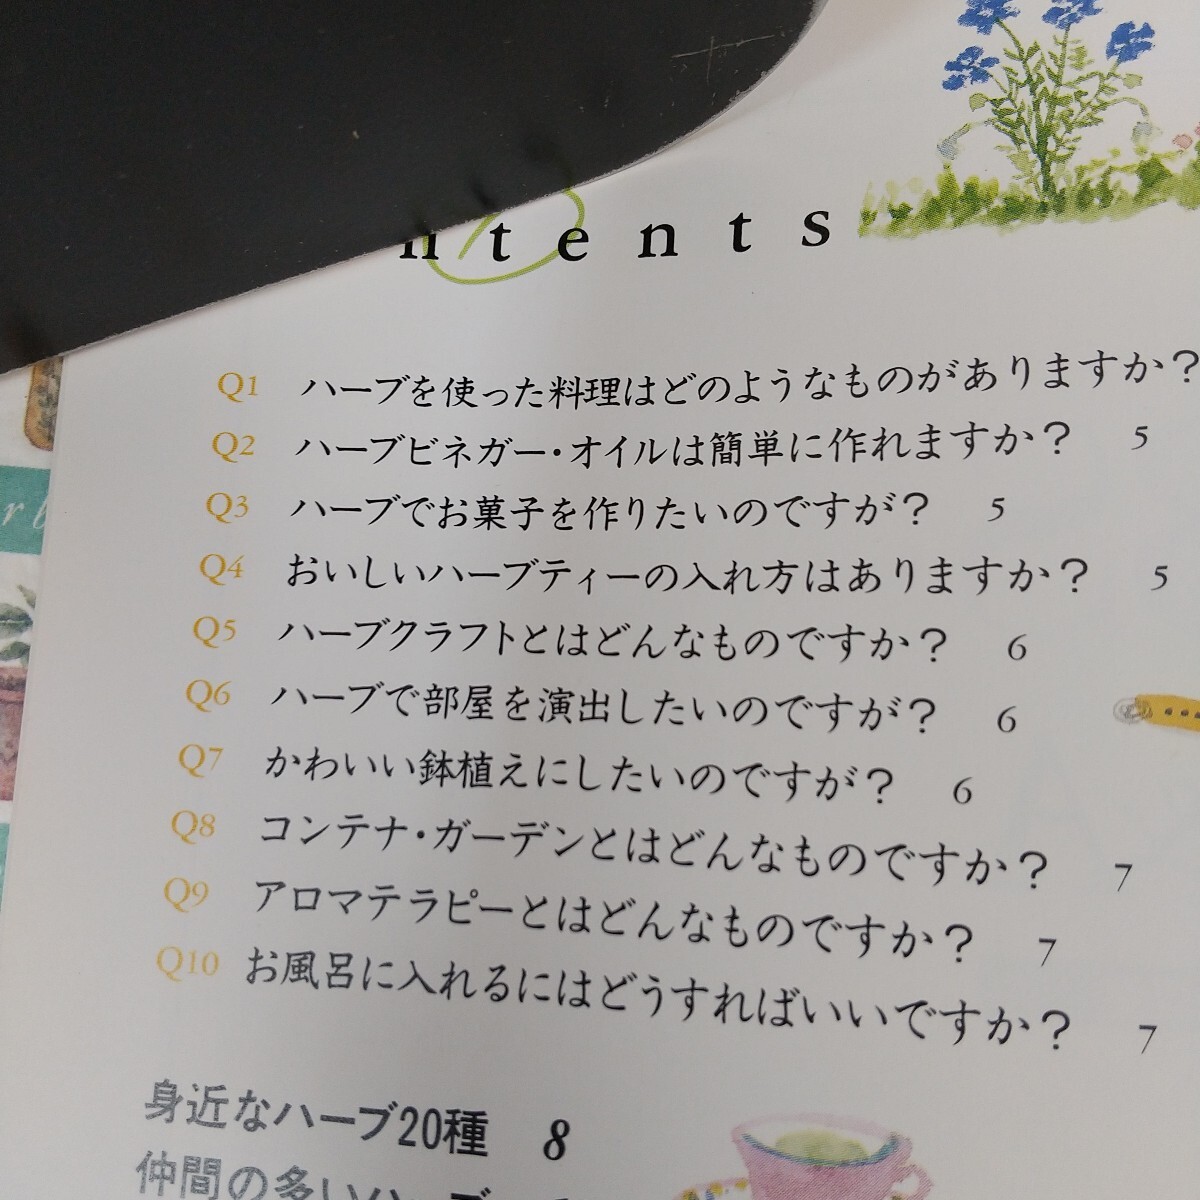 ntents
Q1 ハーブを使った料理はどのようなものがありますか？
Q2 ハーブビネガー・オイルは簡単に作れますか？ 5
Q3 ハーブでお菓子を作りたいのですが？ 5
Q4 おいしいハーブティーの入れ方はありますか？ 5
Q5 ハーブクラフトとはどんなものですか？ 6
Q6 ハーブで部屋を演出したいのですが？ 6
Q7 かわいい鉢植えにしたいのですが？ 6
Q8 コンテナ・ガーデンとはどんなものですか？ 7
Q9 アロマテラピーとはどんなものですか？ 7
Q10 お風呂に入れるにはどうすればいいですか？ 7
身近なハーブ20種 8
仲間の多いハーブ